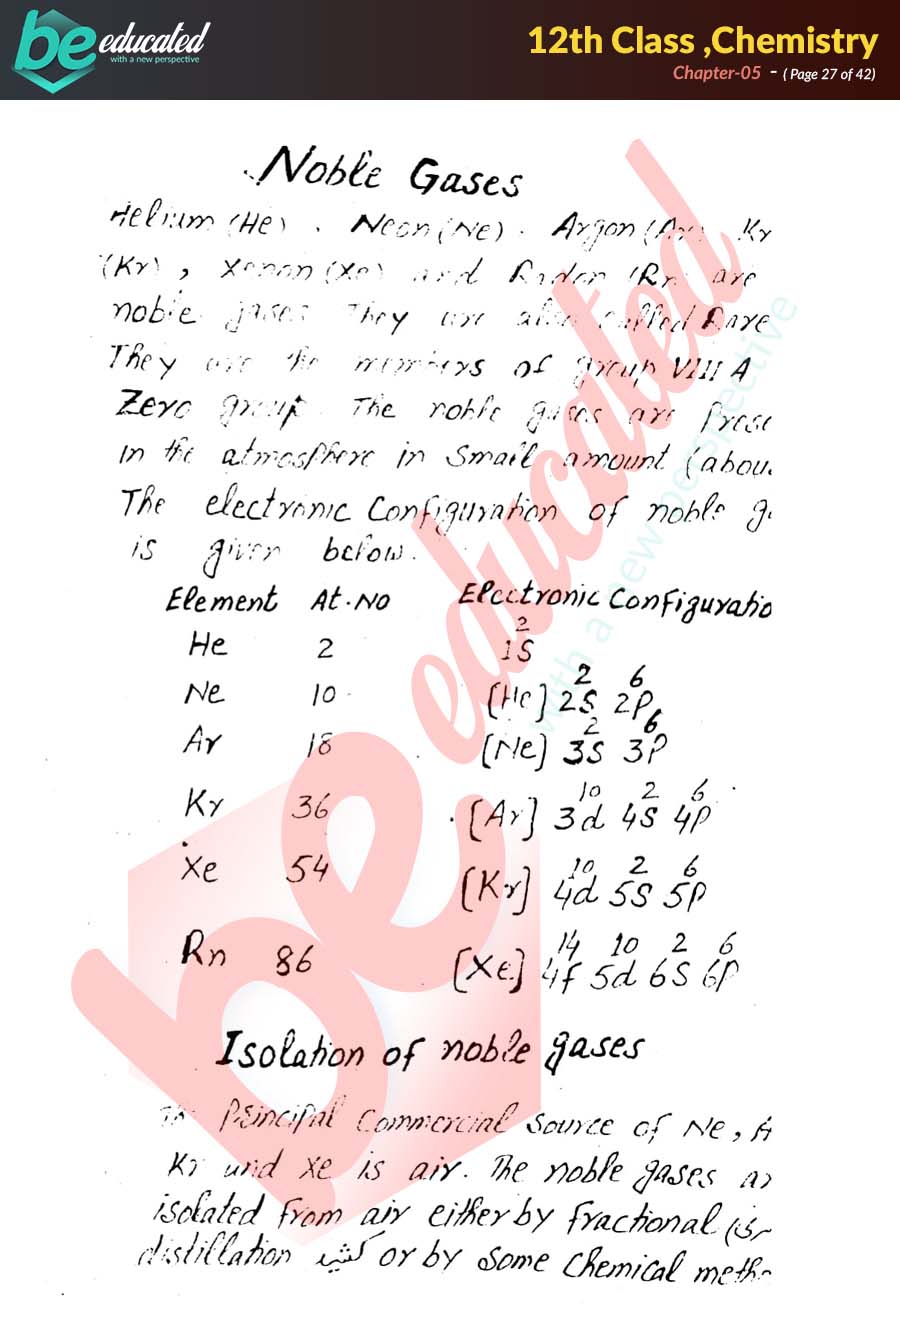 be educated
with a new perspective
12th Class ,Chemistry
Chapter-05 - ( Page 27 of 42)
Noble Gases
Helium (He) . Neon (Ne) . Argon (Ar) Kr
(Kr) , Xenon (Xe) and Radon (Rn) are
noble gases They are also called Rare
They are the members of group VIII A
Zero group. The noble gases are Prese
in the atmosphere in Small amount (abou
The electronic Configuration of noble g
is given below.
Element At.No Electronic Configuratio
He 2 1s²
Ne 10 [He] 2s² 2p⁶
Ar 18 [Ne] 3s² 3p⁶
Kr 36 [Ar] 3d¹⁰ 4s² 4p⁶
Xe 54 [Kr] 4d¹⁰ 5s² 5p⁶
Rn 86 [Xe] 4f¹⁴ 5d¹⁰ 6s² 6p⁶
Isolation of noble gases
The Principal Commercial Source of Ne, A
Kr and Xe is air. The noble gases ar
isolated from air either by fractional
distillation کشید or by some Chemical metho
be educated
with a new perspective